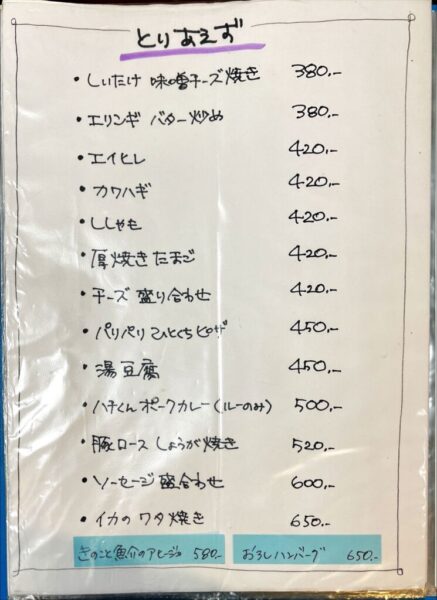 とりあえず
・しいたけ 味噌チーズ焼き 380.-
・エリンギ バター炒め 380.-
・エイヒレ 420.-
・カワハギ 420.-
・ししゃも 420.-
・厚焼きたまご 420.-
・チーズ盛り合わせ 420.-
・パリパリひとくちピザ 450.-
・湯豆腐 450.-
・ハチくんポークカレー(ルーのみ) 500.-
・豚ロースしょうが焼き 520.-
・ソーセージ盛合わせ 600.-
・イカのワタ焼き 650.-
きのこと魚介のアヒージョ 580.- おろしハンバーグ 650.-